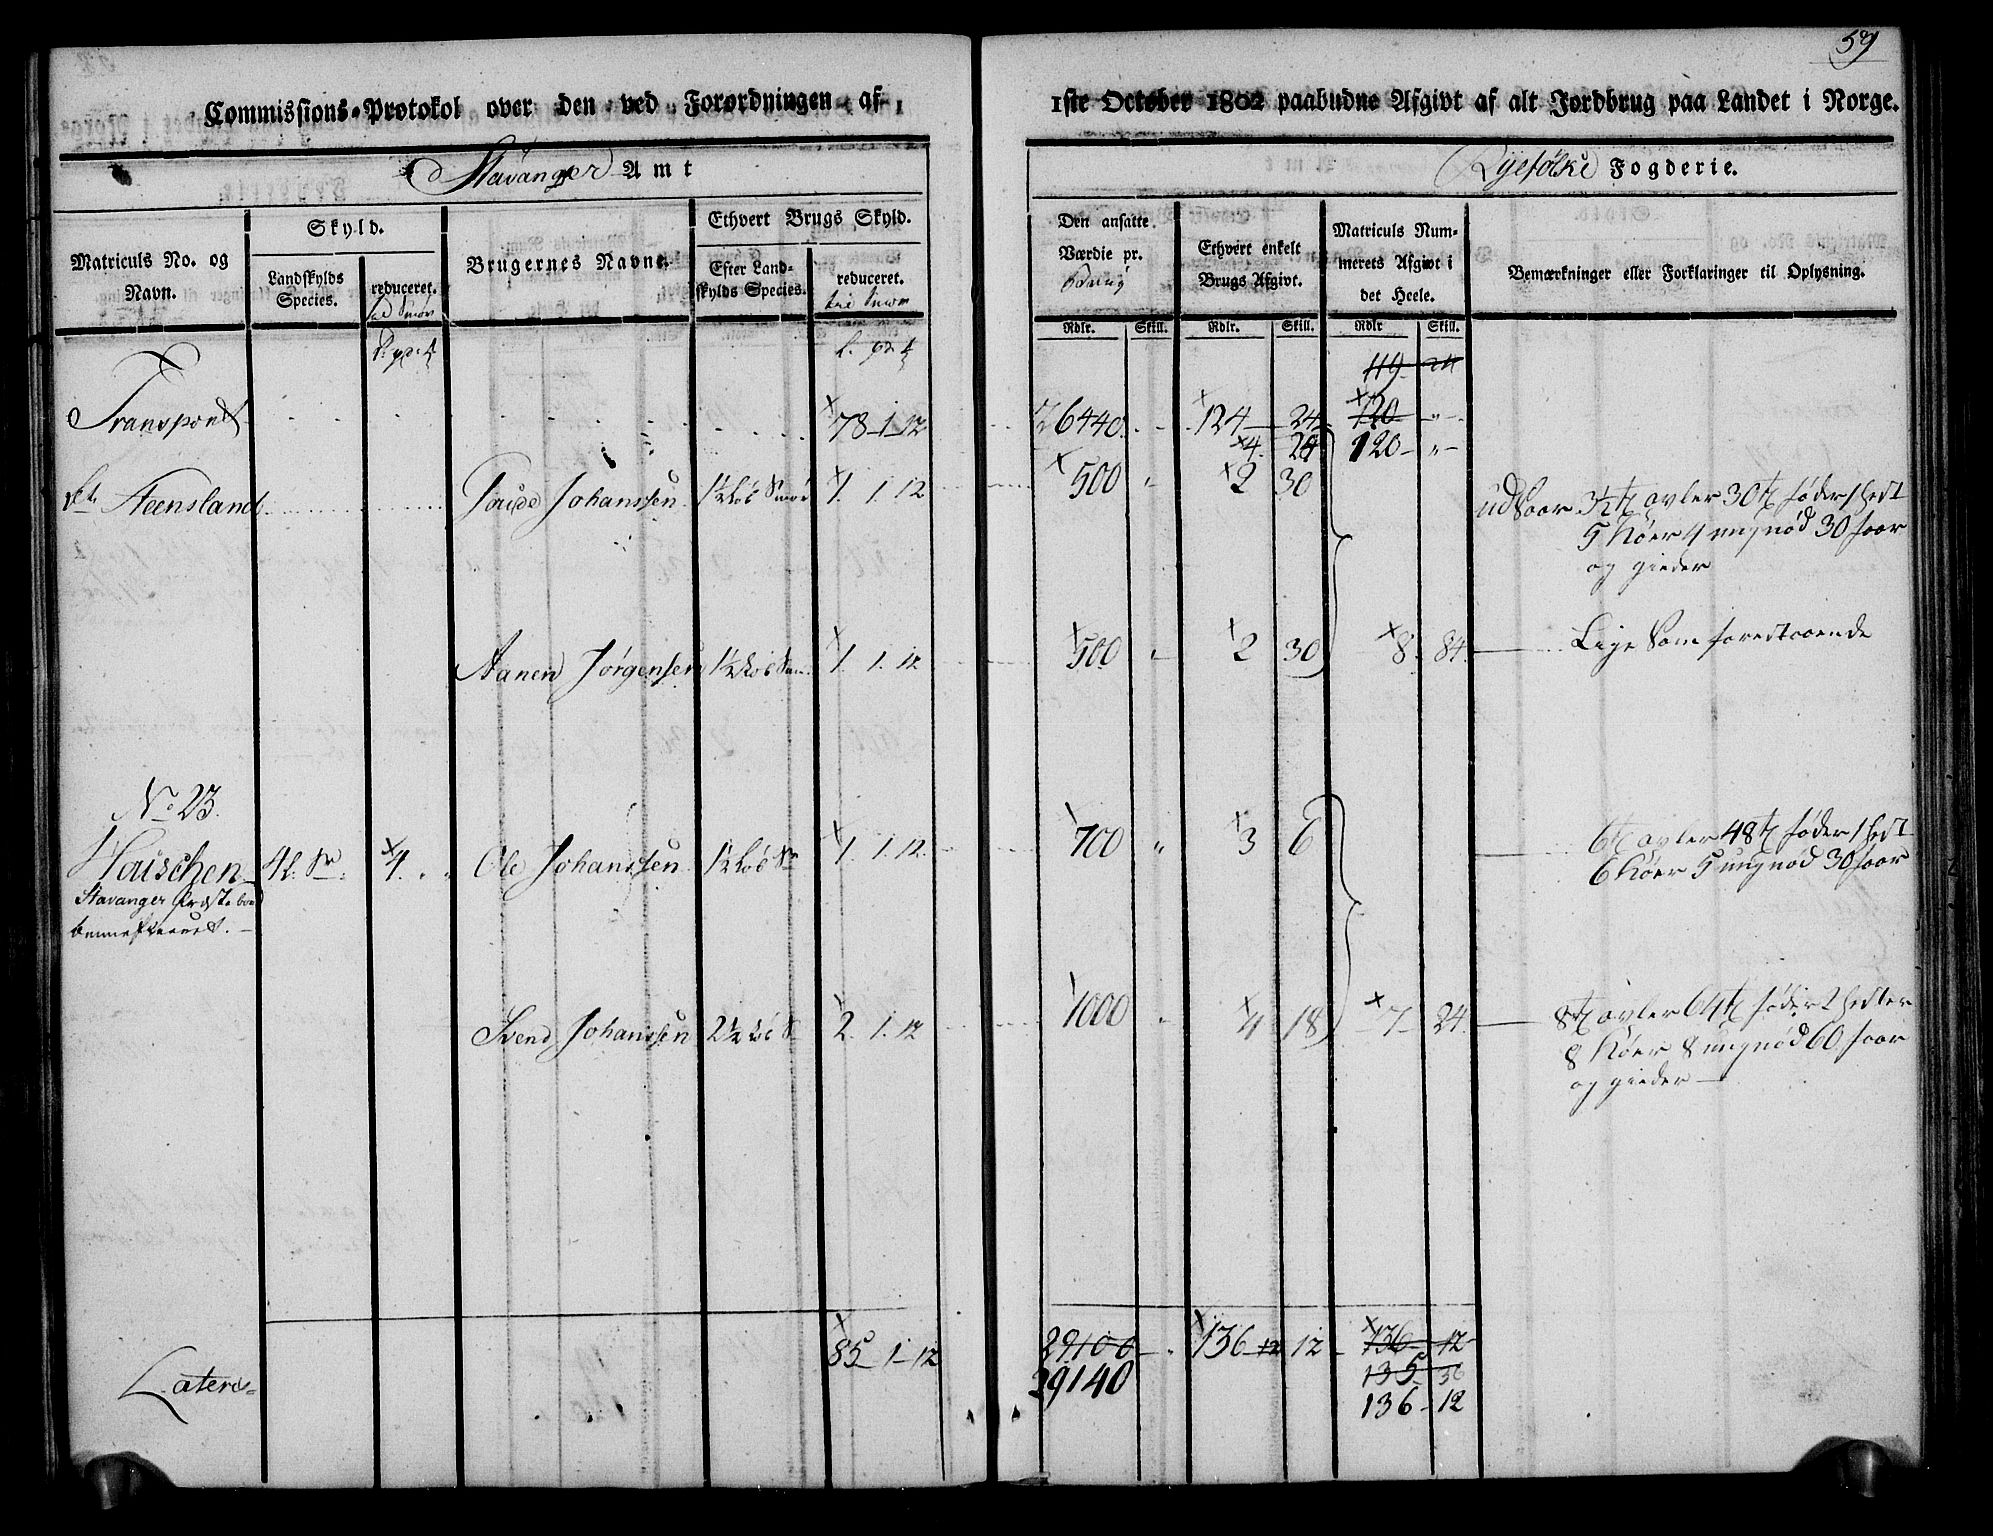 59
Commissions-Protokol over den ved Forordningen af 1ste October 1802 paabudne Afgivt af alt Jordbrug paa Landet i Norge.
Stavanger Amt
Ryefølke Fogderie.
Matriculs No. og Navn.
Skyld.
Landskylds Species.
reduceret.
Brugernes Navne.
Ethvert Brugs Skyld.
Efter Landskylds Species.
reduceret.
til Smør
Den ansatte Værdie pr.
Ethvert enkelt Brugs Afgivt.
Matriculs Nummerets Afgivt i det Heele.
Bemærkninger eller Forklaringer til Oplysning.
Rdlr. Skill. Rdlr. Skill. Rdlr Skill.
119 24
Transport 78-1-12 26440 124 24 120 "
4 24 120 "
Steensland Johanssen 1½ Løb Smør 1. 1. 12 500 " 2 30 udSaar 3½ t avler 30 t føder 1 hest
5 Køer 4 ungnød 30 faar
og gieder
Aanen Jørgensen 1½ Løb Sm. 1. 1. 12 500 " 2 30 8 84 Lige Som forestaaende
No 23.
Haischen 4 l. Sm. 4. " " Ole Johanssen 1½ Løb Sm 1. 1. 12. 700 " 3 6 6 t avler 48 t føder 1 hest
6 Køer 5 ungnød 30 faar
Stavanger Præste bord
benificeret.
Svend Johanssen 2½ Løb S 2. 1. 12 1000 " 4 18 7 24 8 t avler 64 t føder 2 hester
8 Køer 8 ungnød 60 faar
og gieder
85-1-12 29100 136 12 12 136 12
Latera 29140 135 36
136-12